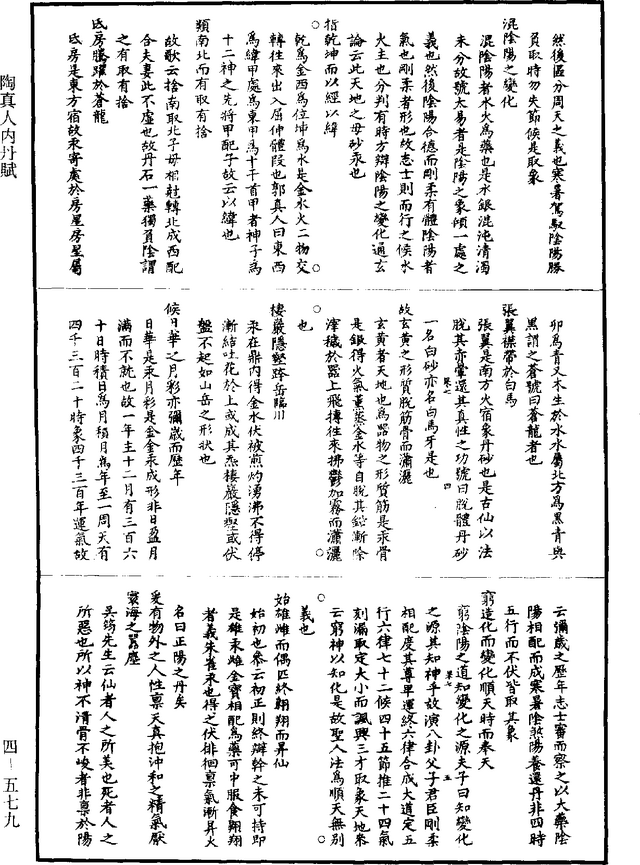 然後區分周天之義也寒暑駕馭陰陽勝
負取時勿失節候是取象
混陰陽之變化
混陰陽者水火為藥也是水銀混沌清濁
未分故號太易者是陰陽之象傾一處之
義也然後陰陽合德而剛柔有體陰陽者
氣也剛柔者形也故志士則而行之候水
火主也分判有時方辯陰陽之變化通玄
論云此天地之母砂汞也
指乾坤而以經以緯
乾為金西為位坤為水是金水火二物交
轉往來出入屈伸體段也郭真人曰東西
為緯甲處為東甲為十千首甲者神子為
十二神之先將甲配子故云以緯也
類南北而有取有捨
故歌云捨南取北子母相尅轉北成西配
合夫妻此不虛也故丹石一藥獨負陰謂
之有取有捨
氐房騰躍於蒼龍
氐房是東方宿故汞寄處於房星房星屬
卯為青又木生於水水屬北方為黑青與
黑謂之蒼號曰蒼龍者也
張翼襟帶於白馬
張翼是南方火宿象丹砂也是古仙以法
脫其赤黨還其真性之功號曰脫體丹砂
一名白砂亦名白馬牙是也
故玄黃之形質脫筋骨而瀟灑
玄黃者天地也為器物之形質筋是汞骨
是銀得火氣薰蒸金水等自脫其鉛漸除
滓穢於器上飛摶往來拂鬱加霧而瀟灑
也
棲巖隱壑跨岳臨川
汞在鼎內得金水伏被煎灼湧沸不得停
漸結吐花於上或成其炁棲巖隱壑或伏
盤不起如山岳之形狀也
候日華之月彩亦彌歲而歷年
日華是汞月彩是金金汞成形非日盈月
滿而不就也故一年主十二月有三百六
十日時積日為月積月為年至一周天有
四千三百二十時象四千三百年運氣故
云彌歲之歷年志士審而察之以大藥陰
陽相配而成寒暑陰煞陽養還丹非四時
五行而不伏皆取其象
窮造化而變化順天時而奉天
窮陰陽之道知變化之源夫子曰知變化
之源其知神乎故演八卦父子君臣剛柔
相配度其尊卑運終六律合成大道定五
行六律七十二候四十五節推二十四氣
刻漏取定大小而諷興三才取象天地泰
云窮神以知化是故聖人法為順天無別
義也
始雄雌而偶匹終翱翔而昇仙
始初也泰云初正則終辯幹之未可持即
是雄汞雌金寶相配為藥可中服食翺翔
者義朱雀汞也得之伏徘徊稟氣漸昇火
名曰正陽之丹矣
爰有物外之人性稟天真抱沖和之精氣厭
寰海之囂塵
吳筠先生云仙者人之所美也死者人之
所惡也所以神不清骨不峻者非稟於陽
陶真人內丹賦
四－五七九